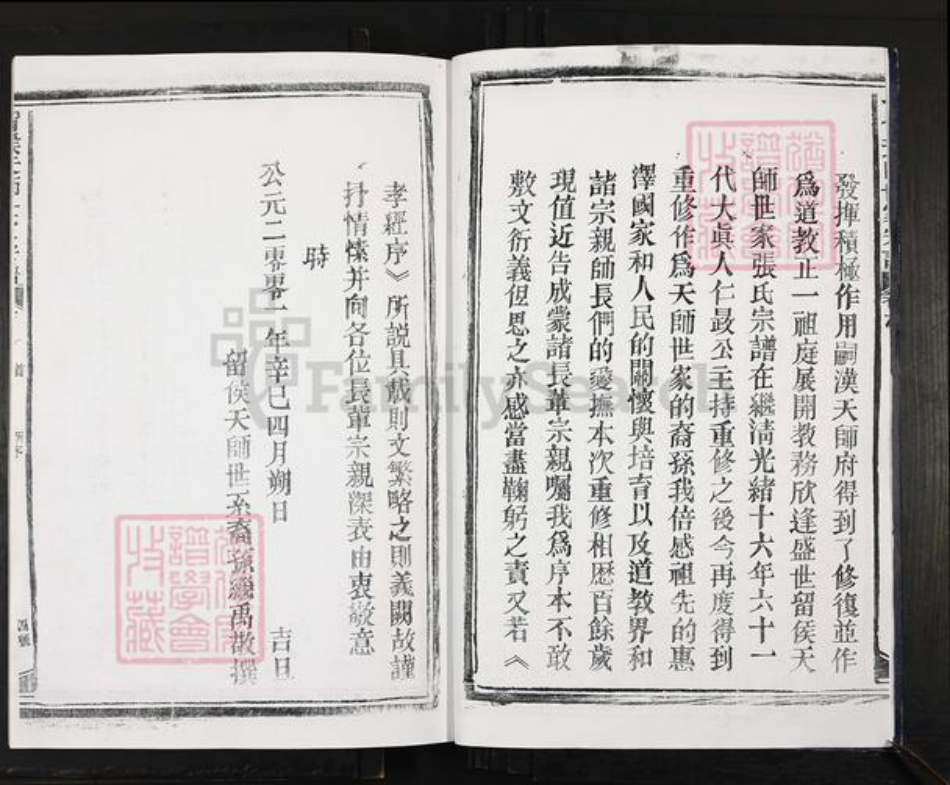 發揮積極作用嗣漢天師府得到了修復並作
爲道教止一祖庭展開教務欣逢盛世留侯天
師世家張氏宗譜在繼清光緒十六年六十一
代大眞人仁晸公主持重修之後今再度得到
重修作爲天師世家的裔孫我倍感祖先的惠
澤國家和人民的關懷與培育以及道教界和
諸宗親師長們的愛撫本次重修相歷百餘歲
現值近告成蒙諸長輩宗親囑我爲序本不敢
敷文衍義但思之亦感當盡鞠躬之責又若《
孝經序》所說具載則文繁略之則義闕故謹
抒情愫并向各位長輩宗親深表由衷敬意
時
公元二零零一年辛巳四月朔日 吉旦
留侯天師世系裔孫繼禹敬撰
FamilySearch